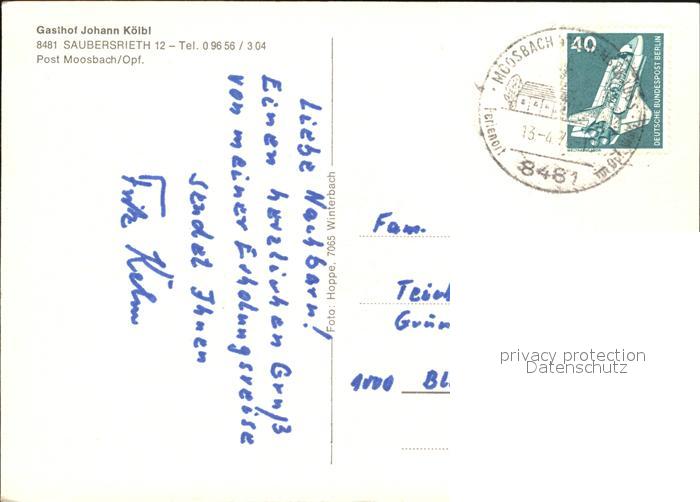 Gasthof Johann Kölbl
8481 SAUBERSRIETH 12 – Tel. 0 96 56 / 3 04
Post Moosbach/Opf.
Liebe Nachbarn!
Einen herzlichen Gruß
von meiner Erholungsreise
sendet Ihnen
Fritz
Foto: Hoppe, 7065 Winterbach
MOOSBACH
13-4.7
8481
40
DEUTSCHE BUNDESPOST BERLIN
Fam.
1000
privacy protection
Datenschutz